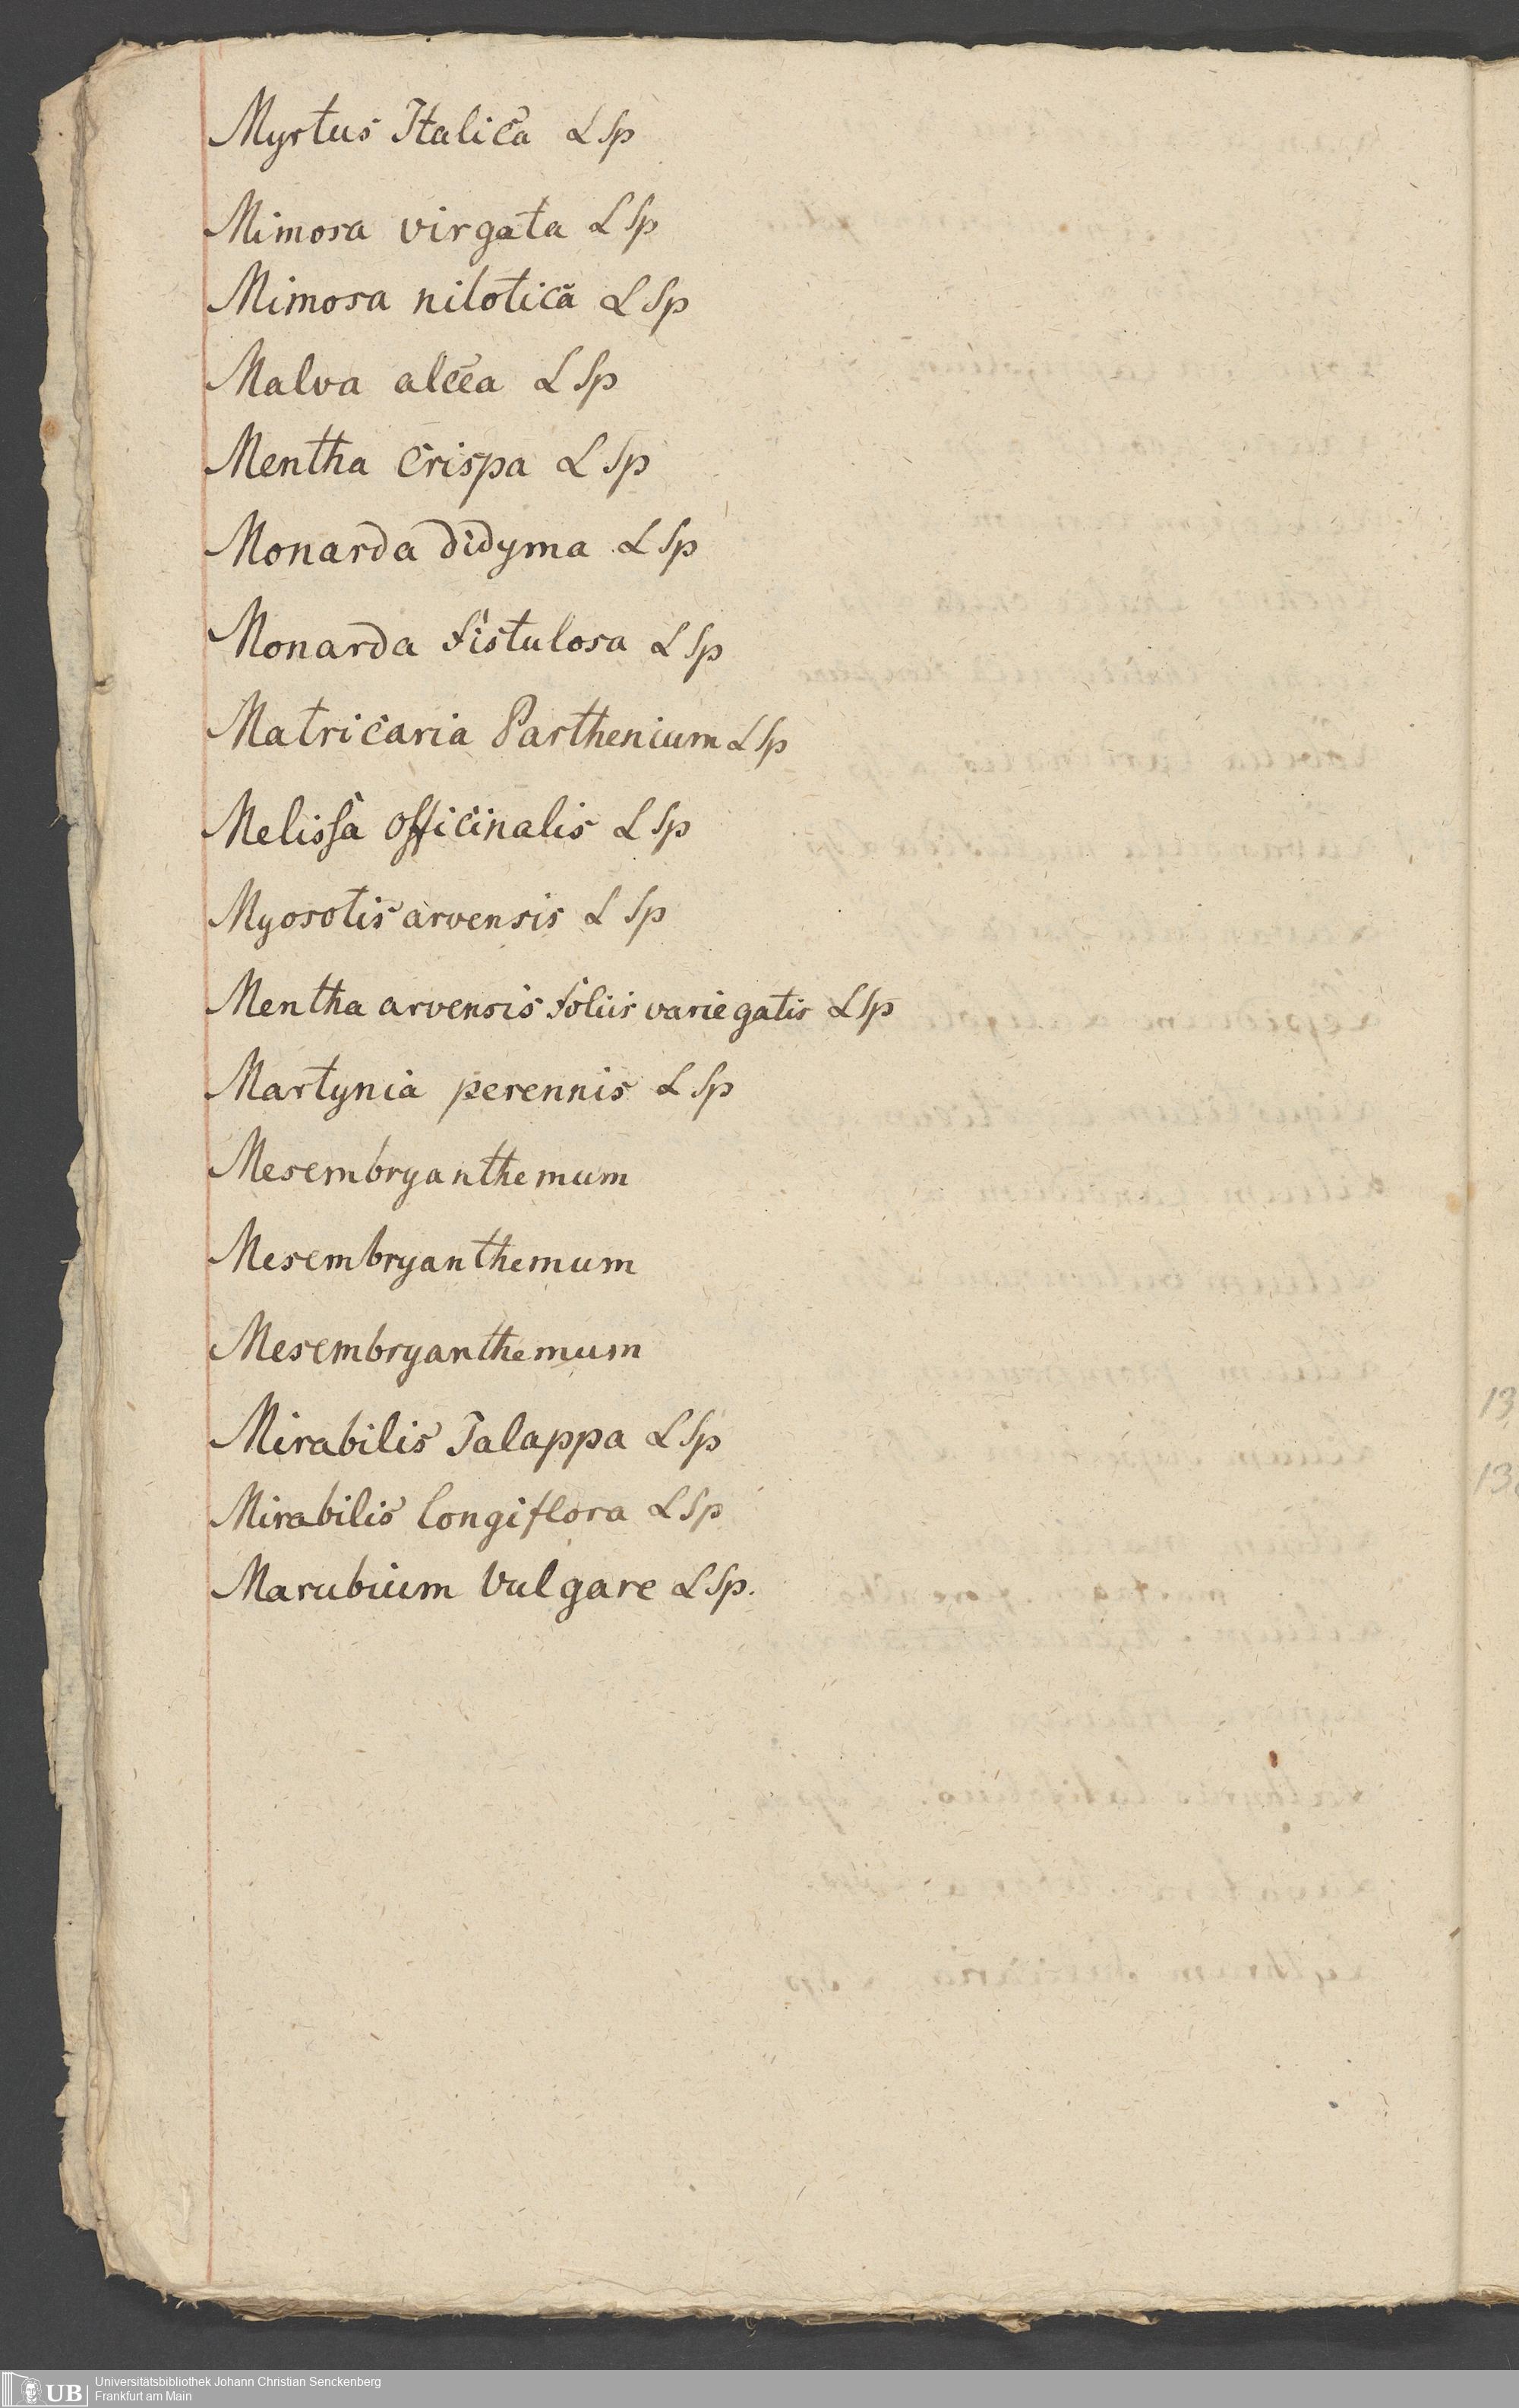 Myrtus Italica L Sp
Mimosa virgata L Sp
Mimosa nilotica L Sp
Malva alcea L Sp
Mentha Crispa L Sp
Monarda didyma L Sp
Monarda fistulosa L Sp
Matricaria Parthenium L Sp
Melissa officinalis L Sp
Myosotis arvensis L Sp
Mentha arvensis foliis variegatis L Sp
Martynia perennis L Sp
Mesembryanthemum
Mesembryanthemum
Mesembryanthemum
Mirabilis Jalappa L Sp
Mirabilis longiflora L Sp
Marubium Vulgare L Sp.
UB
Universitätsbibliothek Johann Christian Senckenberg
Frankfurt am Main